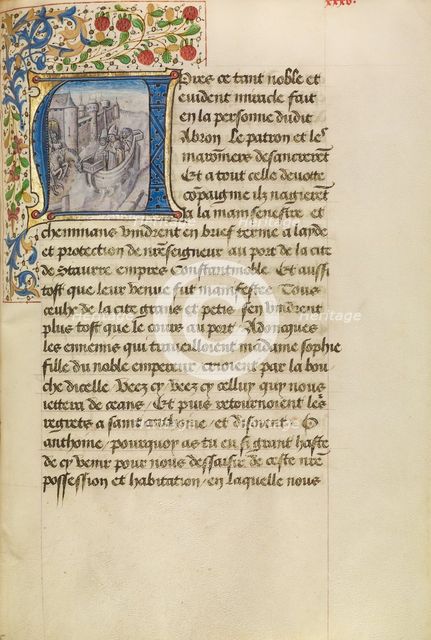 xxxv.
Apres ce tant noble et
euident miracle fait
en la personne dudit
Abron Le patron et les
maronniers desancrerent
Et a tout celle deuote
compaignie ilz nagerent
a la main senestre et
cheminans vindrent en brief terme a laide
et protection de nostre seigneur au port de la cite
de Stauire empres Constantinoble Et aussi
tost que leur venue fut manifestee Tous
ceulx de la cite grans et petis sen vindrent
plus tost que le cours au port Adoncques
les ennemis qui trauelloient madame Sophie
fille du noble empereur crioient par la bou
che dicelle Veez cy veez cy celluy quy nous
iettera de ceans Et puis retournoient les
regretz a saint anthoine et disoient O
anthoine pourquoy as tu eu si grant haste
de cy venir pour nous dessaisir de ceste nostre
possession et habitation en laquelle nous
Heritage
Heritage
Heritage